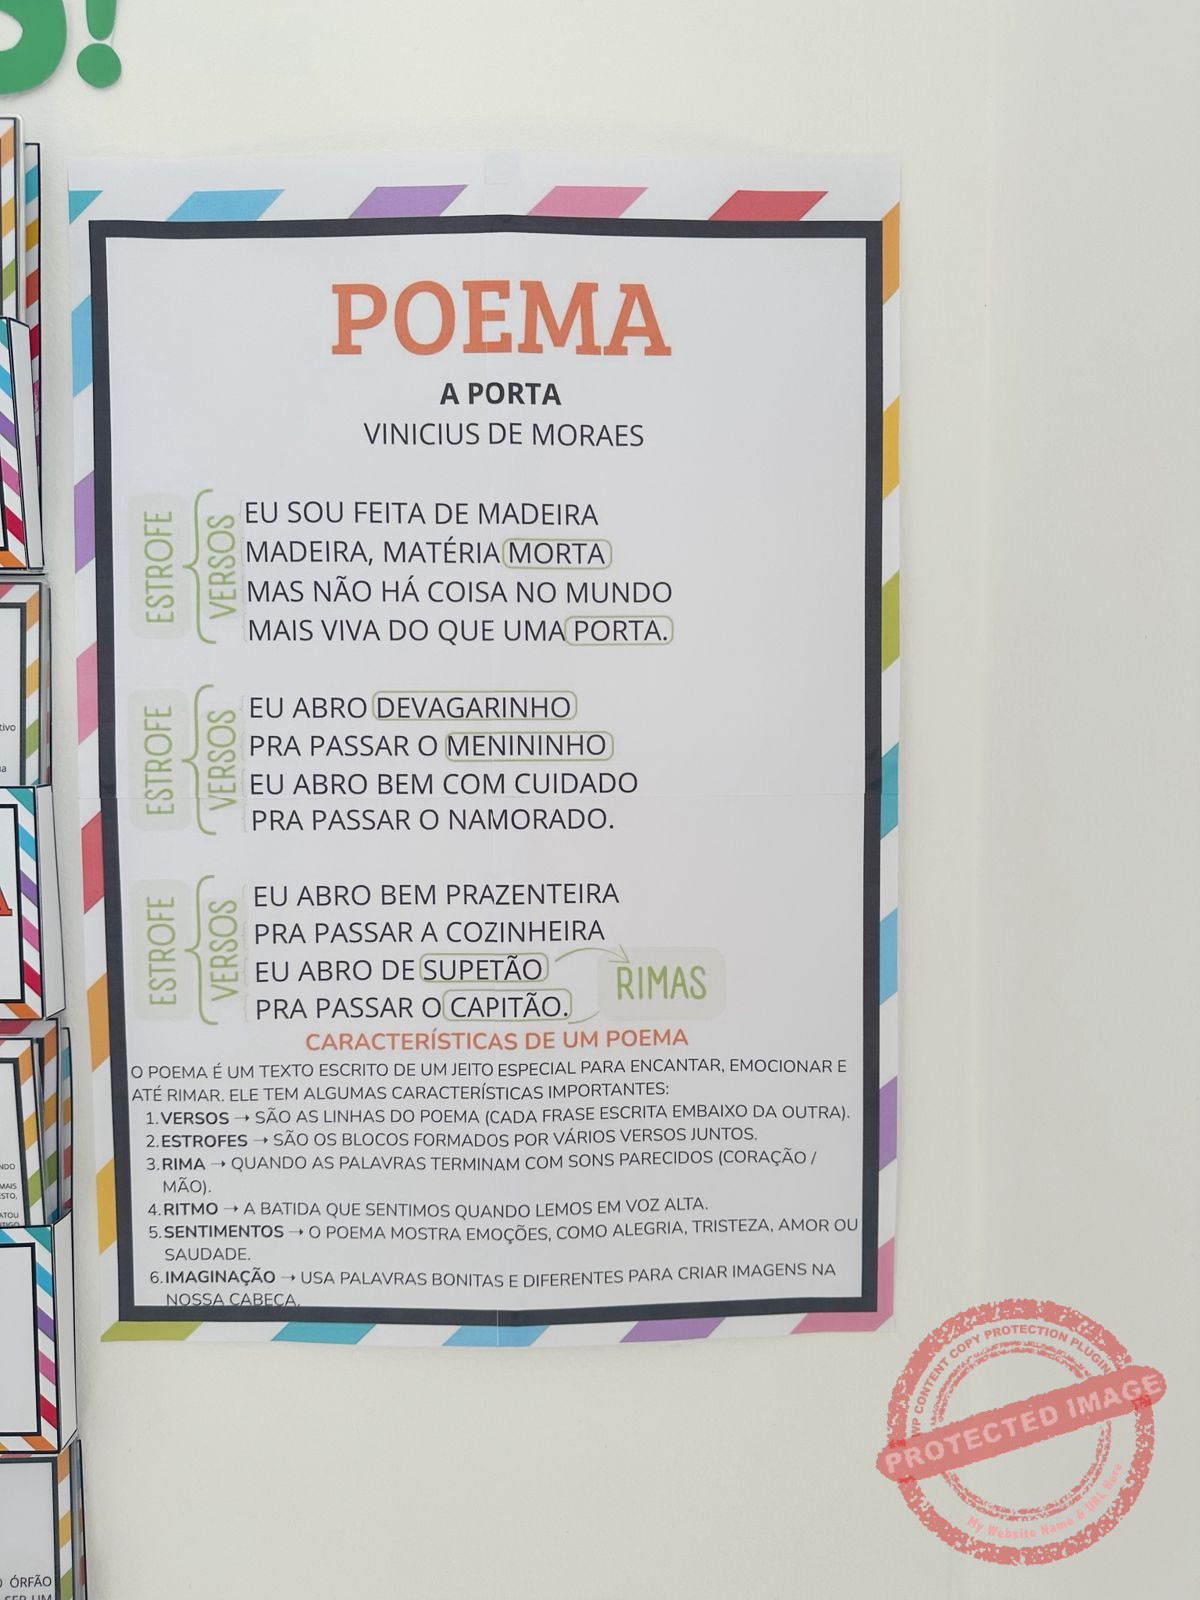 S!
POEMA
A PORTA
VINICIUS DE MORAES
ESTROFE
VERSOS
EU SOU FEITA DE MADEIRA
MADEIRA, MATÉRIA MORTA
MAS NÃO HÁ COISA NO MUNDO
MAIS VIVA DO QUE UMA PORTA.
ESTROFE
VERSOS
EU ABRO DEVAGARINHO
PRA PASSAR O MENININHO
EU ABRO BEM COM CUIDADO
PRA PASSAR O NAMORADO.
ESTROFE
VERSOS
EU ABRO BEM PRAZENTEIRA
PRA PASSAR A COZINHEIRA
EU ABRO DE SUPETÃO
PRA PASSAR O CAPITÃO.
RIMAS
CARACTERÍSTICAS DE UM POEMA
O POEMA É UM TEXTO ESCRITO DE UM JEITO ESPECIAL PARA ENCANTAR, EMOCIONAR E
ATÉ RIMAR. ELE TEM ALGUMAS CARACTERÍSTICAS IMPORTANTES:
1. VERSOS → SÃO AS LINHAS DO POEMA (CADA FRASE ESCRITA EMBAIXO DA OUTRA).
2. ESTROFES → SÃO OS BLOCOS FORMADOS POR VÁRIOS VERSOS JUNTOS.
3. RIMA → QUANDO AS PALAVRAS TERMINAM COM SONS PARECIDOS (CORAÇÃO /
MÃO).
4. RITMO → A BATIDA QUE SENTIMOS QUANDO LEMOS EM VOZ ALTA.
5. SENTIMENTOS → O POEMA MOSTRA EMOÇÕES, COMO ALEGRIA, TRISTEZA, AMOR OU
SAUDADE.
6. IMAGINAÇÃO → USA PALAVRAS BONITAS E DIFERENTES PARA CRIAR IMAGENS NA
NOSSA CABEÇA.
MAIS
ÓRFÃO
SER UM
WP CONTENT COPY PROTECTION PLUGIN
PROTECTED IMAGE
My Website Name & URL Here